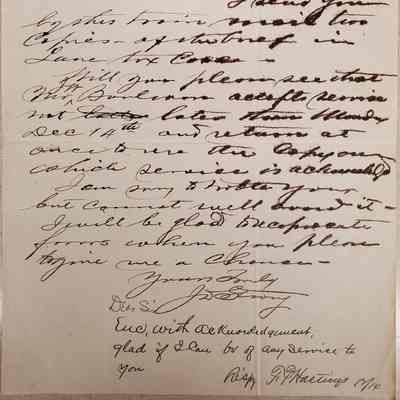 I send you
by this train mail two
Copies of the brief in
Lane vs
Will you please see that
Mr accepts service
not later than Monday
Dec 14th and return at
once to me the Copy on
which service is acknowledged
I am sorry to trouble you
but cannot well avoid it -
I will be glad to reciprocate
favors when you please
to give me a Chance -
Yours Truly
Dear Sir
Enc, with acknowledgement,
glad if I can be of any service to
you
Respy Hastings 12/10